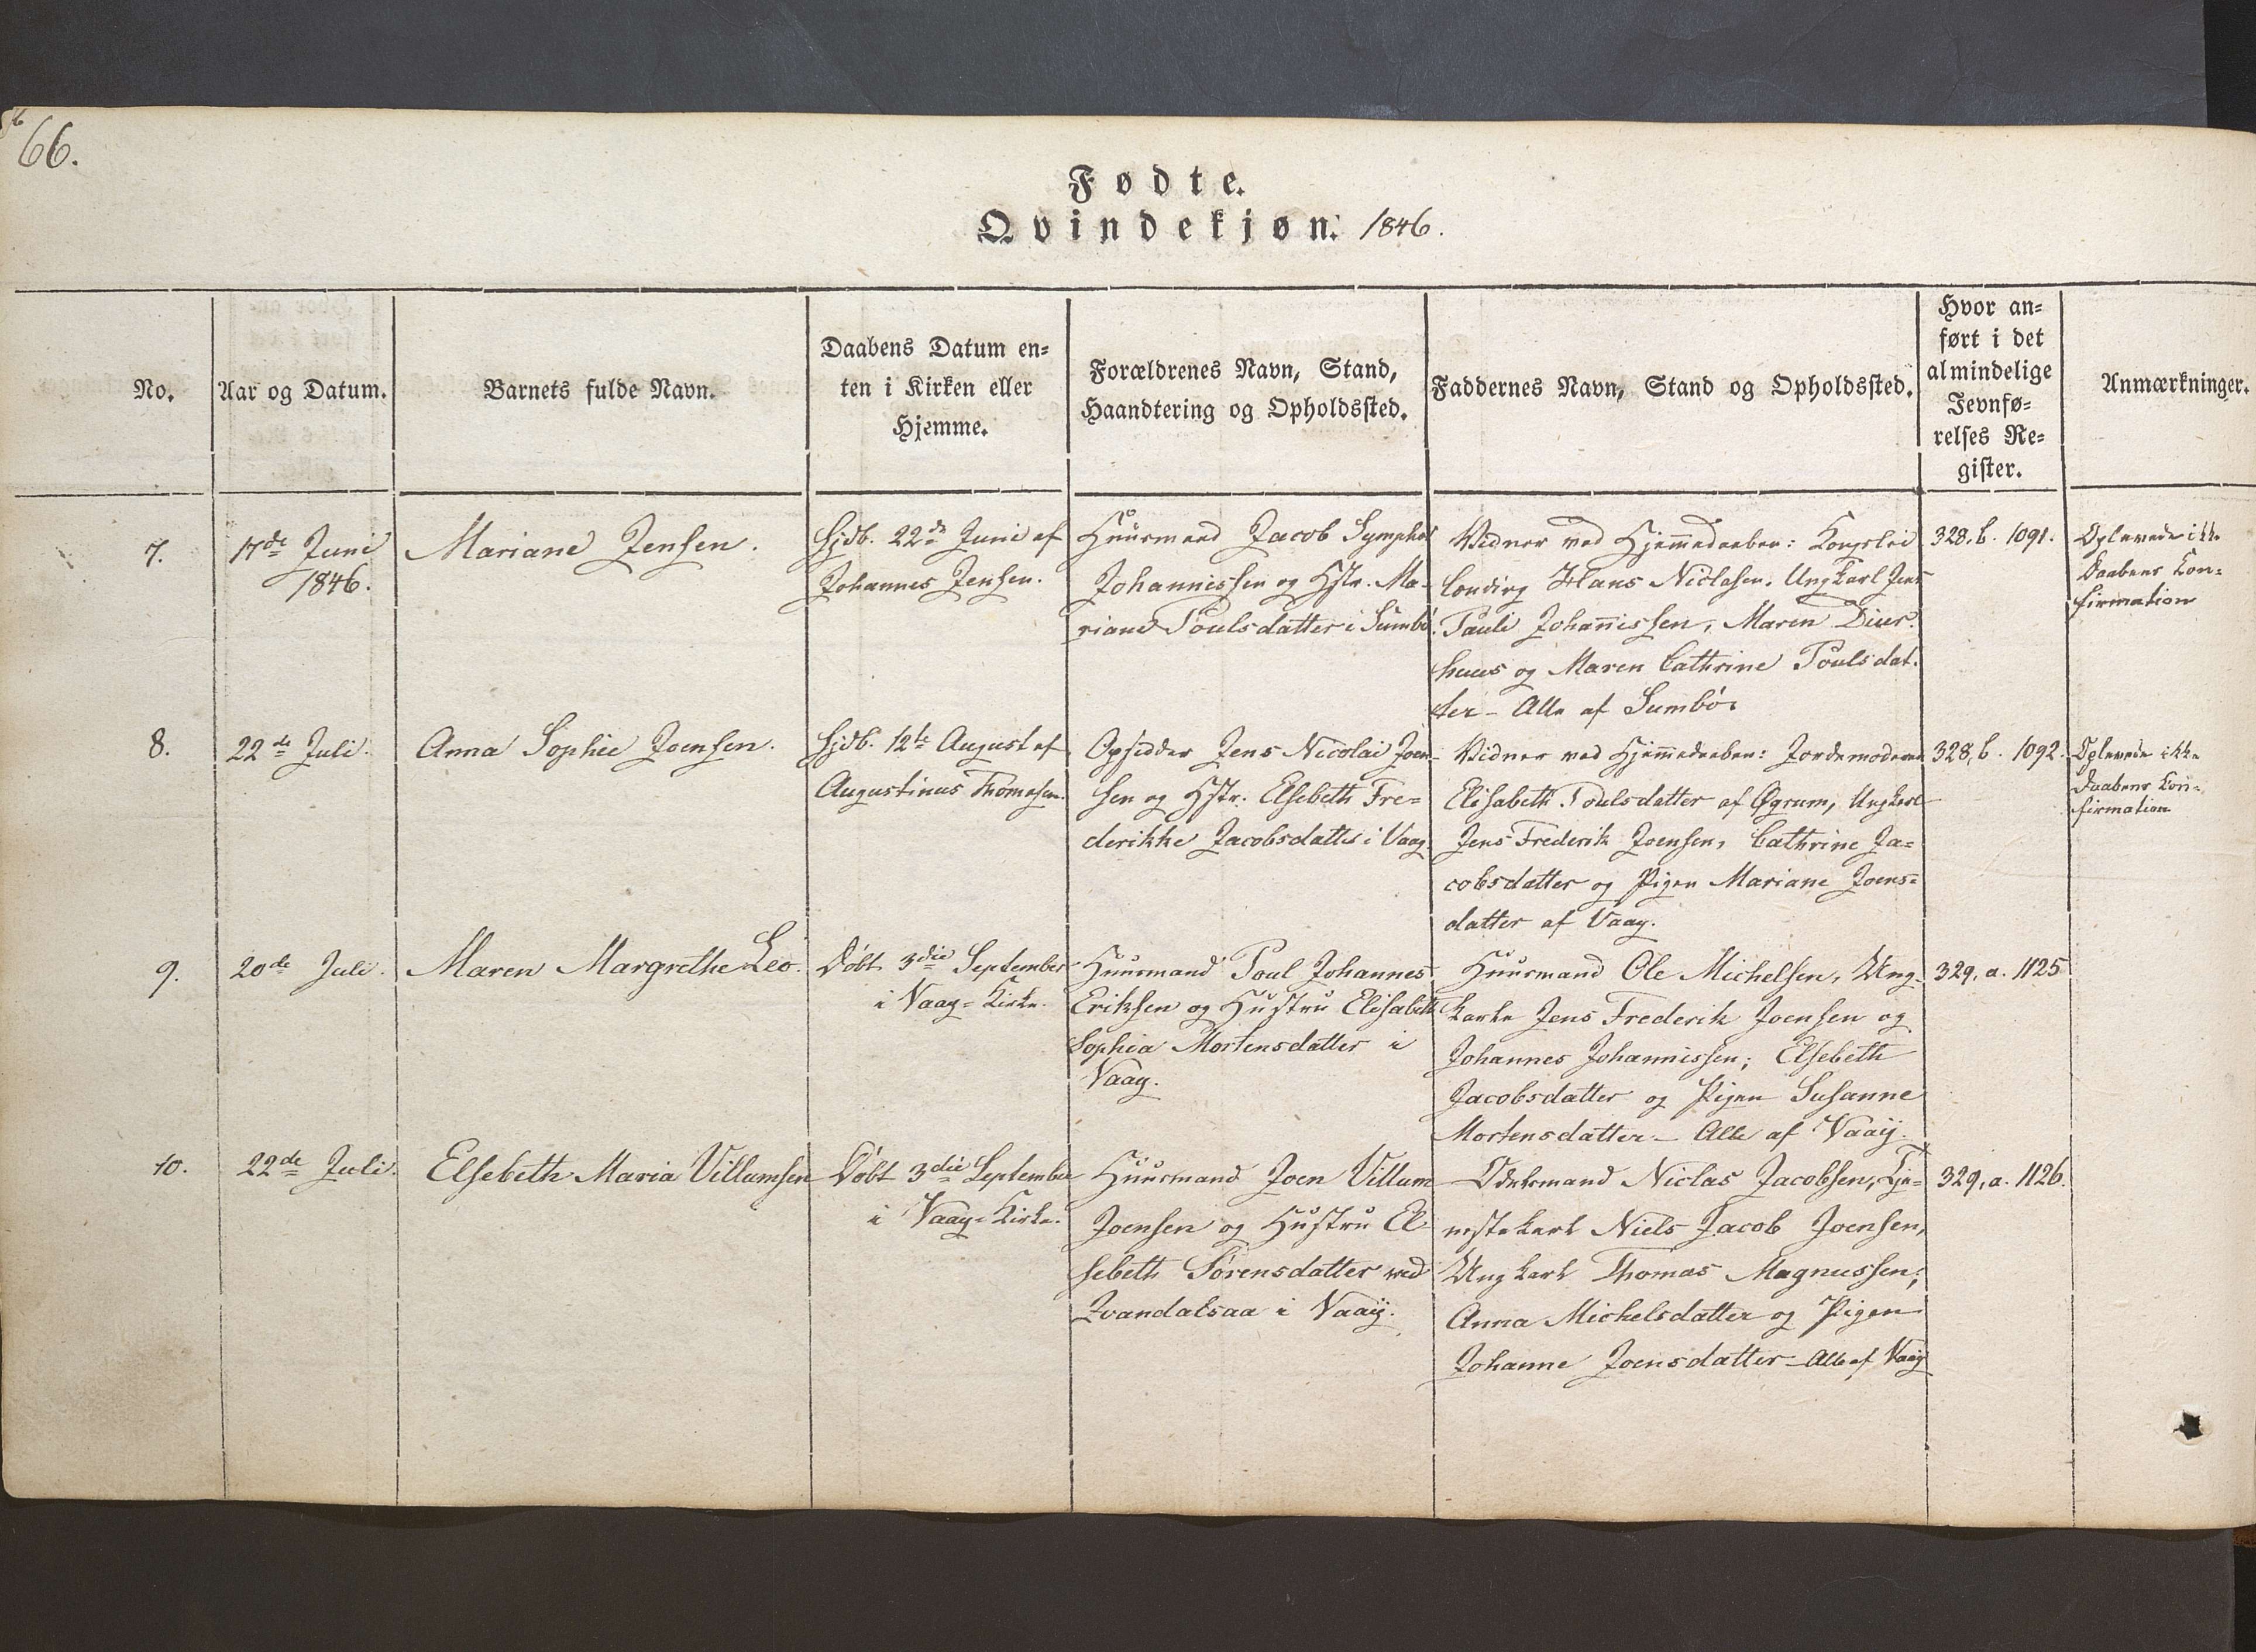 66.
Fødte.
Qvindekjøn. 1846.
No.
Aar og Datum.
Barnets fulde Navn.
Daabens Datum en=
ten i Kirken eller
Hjemme.
Forældrenes Navn, Stand,
Haandtering og Opholdssted.
Faddernes Navn, Stand og Opholdssted.
Hvor an=
ført i det
almindelige
Jevnfø=
relses Re=
gister.
Anmærkninger.
7.
17de Juni
1846.
Mariane Jensen.
Hjdb. 22de Juni af
Johannes Jensen.
Huusmand Jacob Sympho
Johannissen og Hstr. Ma-
riane Poulsdatter i Sumbø.
Vidner ved Hjemmedaaben:
Hans Niclasen, Ungkarl Jens
Pauli Johannissen, Maren Diur-
huus og Maren Cathrine Poulsdat-
ter - Alle af Sumbø.
328, b. 1091.
Oplevede ikke
Daabens Con=
firmation
8.
22de Juli.
Anna Sophie Joensen.
Hjdb. 12te August af
Augustinus Thomasen.
Opsidder Jens Nicolai Joen-
sen og Hstr. Elsebeth Fre=
derikke Jacobsdatter i Vaag.
Vidner ved Hjemmedaaben: Jordemoderen
Elisabeth Poulsdatter af Øgrum, Ungkarl
Jens Frederik Joensen, Cathrine Ja=
cobsdatter og Pigen Mariane Joens=
datter af Vaag.
328, b. 1092.
Oplevede ikke
Daabens Con=
firmation
9.
20de Juli.
Maren Margrethe Leo.
Døbt 3die September
i Vaag=Kirke.
Huusmand Poul Johannes
Eriksen og Hustru Elisabeth
Sophia Mortensdatter i
Vaag.
Huusmand Ole Michelsen, Ung-
karle Jens Frederik Joensen og
Johannes Johannissen; Elsebeth
Jacobsdatter og Pigen Susanne
Mortensdatter - Alle af Vaag.
329, a. 1125
10.
22de Juli.
Elsebeth Maria Villumsen
Døbt 3die September
i Vaag=Kirke.
Huusmand Joen Villum
Joensen og Hustru El-
sebeth Sørensdatter ved
Qvandalsaa i Vaag.
Odelsmand Niclas Jacobsen, Tje=
nestekarl Niels Jacob Joensen,
Ungkarl Thomas Magnussen;
Anna Michelsdatter og Pigen
Johanne Joensdatter - Alle af Vaag
329, a. 1126.